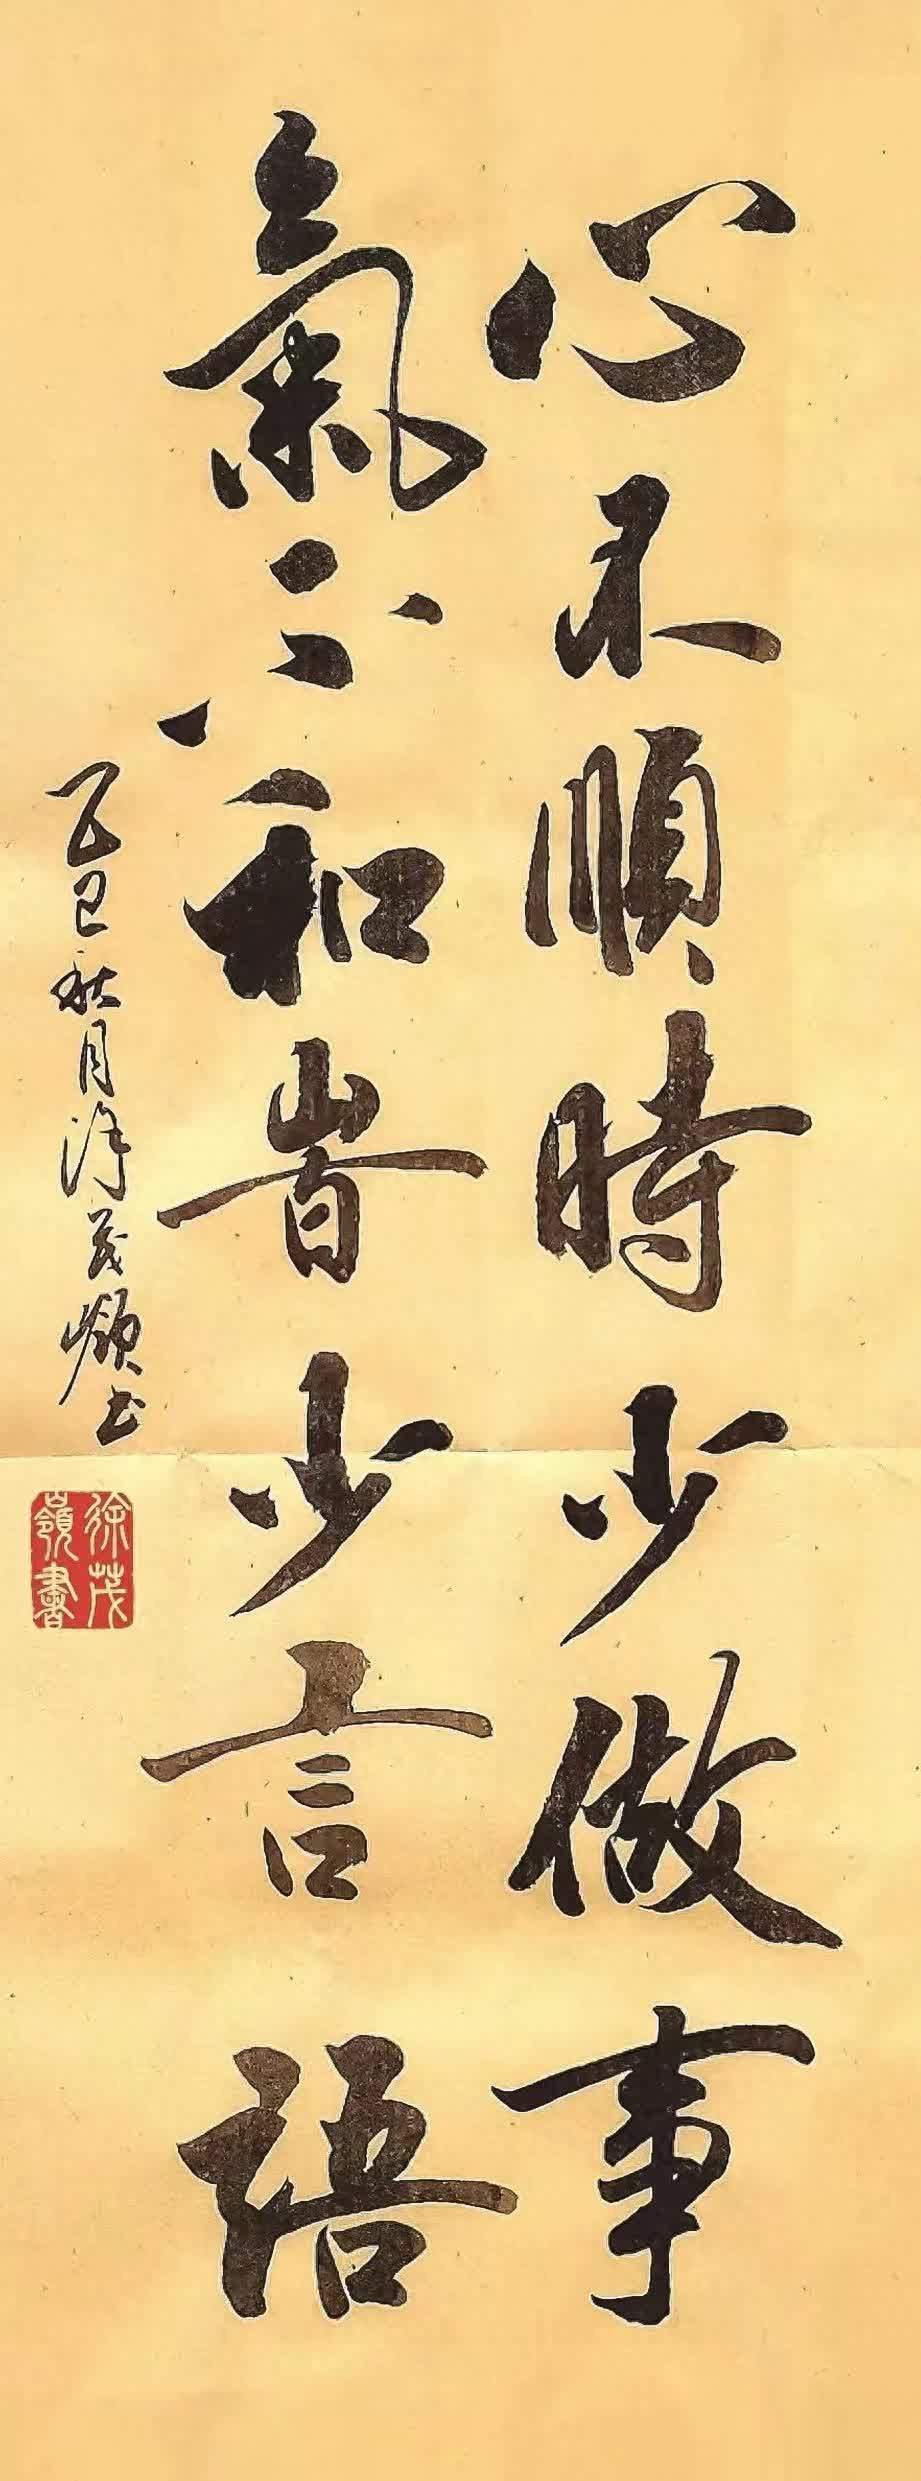 心不順時少做事
氣不和旹少言語
乙巳秋月徐茂嶺书
徐茂
嶺書